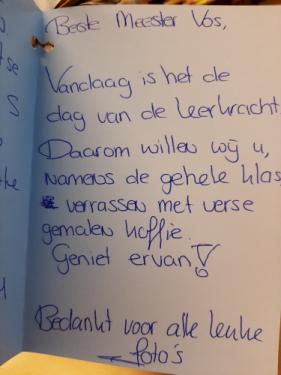 Beste Meester Vos,
Vandaag is het de
dag van de leerkracht
Daarom willen wij u,
namens de gehele klas,
verrassen met verse
gemalen koffie.
Geniet ervan!
Bedankt voor alle leuke
foto's